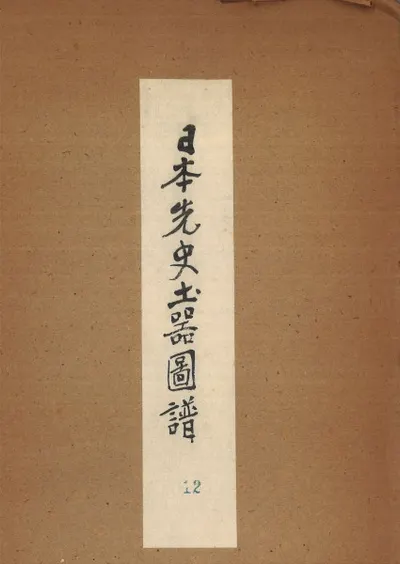 日本先史土器圖譜
12